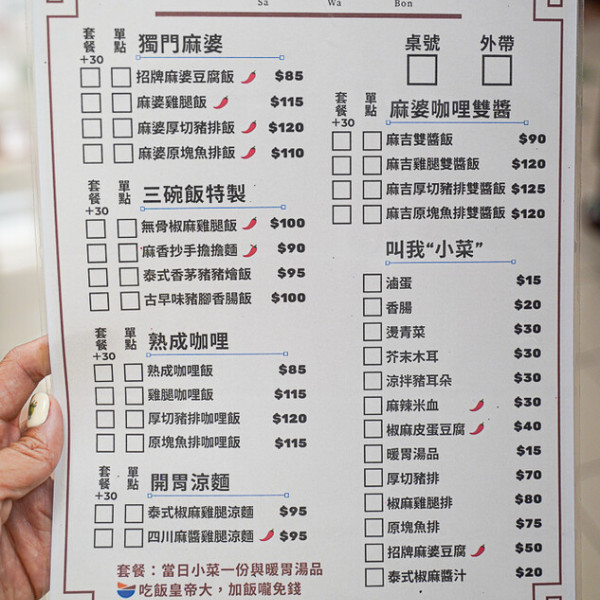 Sa Wa Bon
套餐+30 單點 獨門麻婆
招牌麻婆豆腐飯 $85
麻婆雞腿飯 $115
麻婆厚切豬排飯 $120
麻婆原塊魚排飯 $110
套餐+30 單點 三碗飯特製
無骨椒麻雞腿飯 $100
麻香抄手擔擔麵 $90
泰式香茅豬豬燴飯 $95
古早味豬腳香腸飯 $100
套餐+30 單點 熟成咖哩
熟成咖哩飯 $85
雞腿咖哩飯 $115
厚切豬排咖哩飯 $120
原塊魚排咖哩飯 $115
套餐+30 單點 開胃涼麵
泰式椒麻雞腿涼麵 $95
四川麻醬雞腿涼麵 $95
套餐：當日小菜一份與暖胃湯品
吃飯皇帝大，加飯嚨免錢
桌號 外帶
套餐+30 單點 麻婆咖哩雙醬
麻吉雙醬飯 $90
麻吉雞腿雙醬飯 $120
麻吉厚切豬排雙醬飯 $125
麻吉原塊魚排雙醬飯 $120
叫我“小菜”
滷蛋 $15
香腸 $20
燙青菜 $30
芥末木耳 $30
涼拌豬耳朵 $30
麻辣米血 $30
椒麻皮蛋豆腐 $40
暖胃湯品 $15
厚切豬排 $70
椒麻雞腿排 $80
原塊魚排 $75
招牌麻婆豆腐 $50
泰式椒麻醬汁 $20